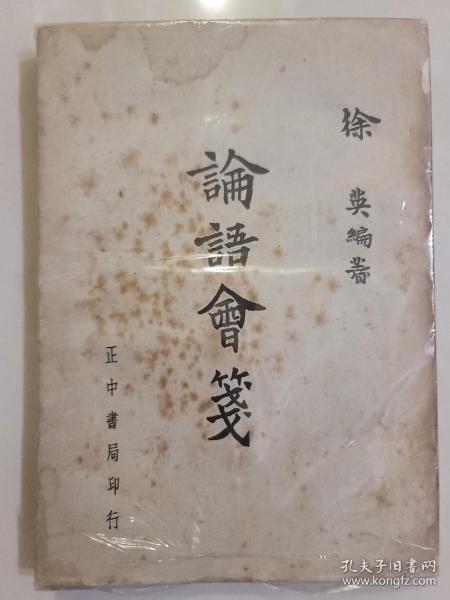 徐英編著
論語會箋
正中書局印行
孔夫子旧书网
www.kongfz.com